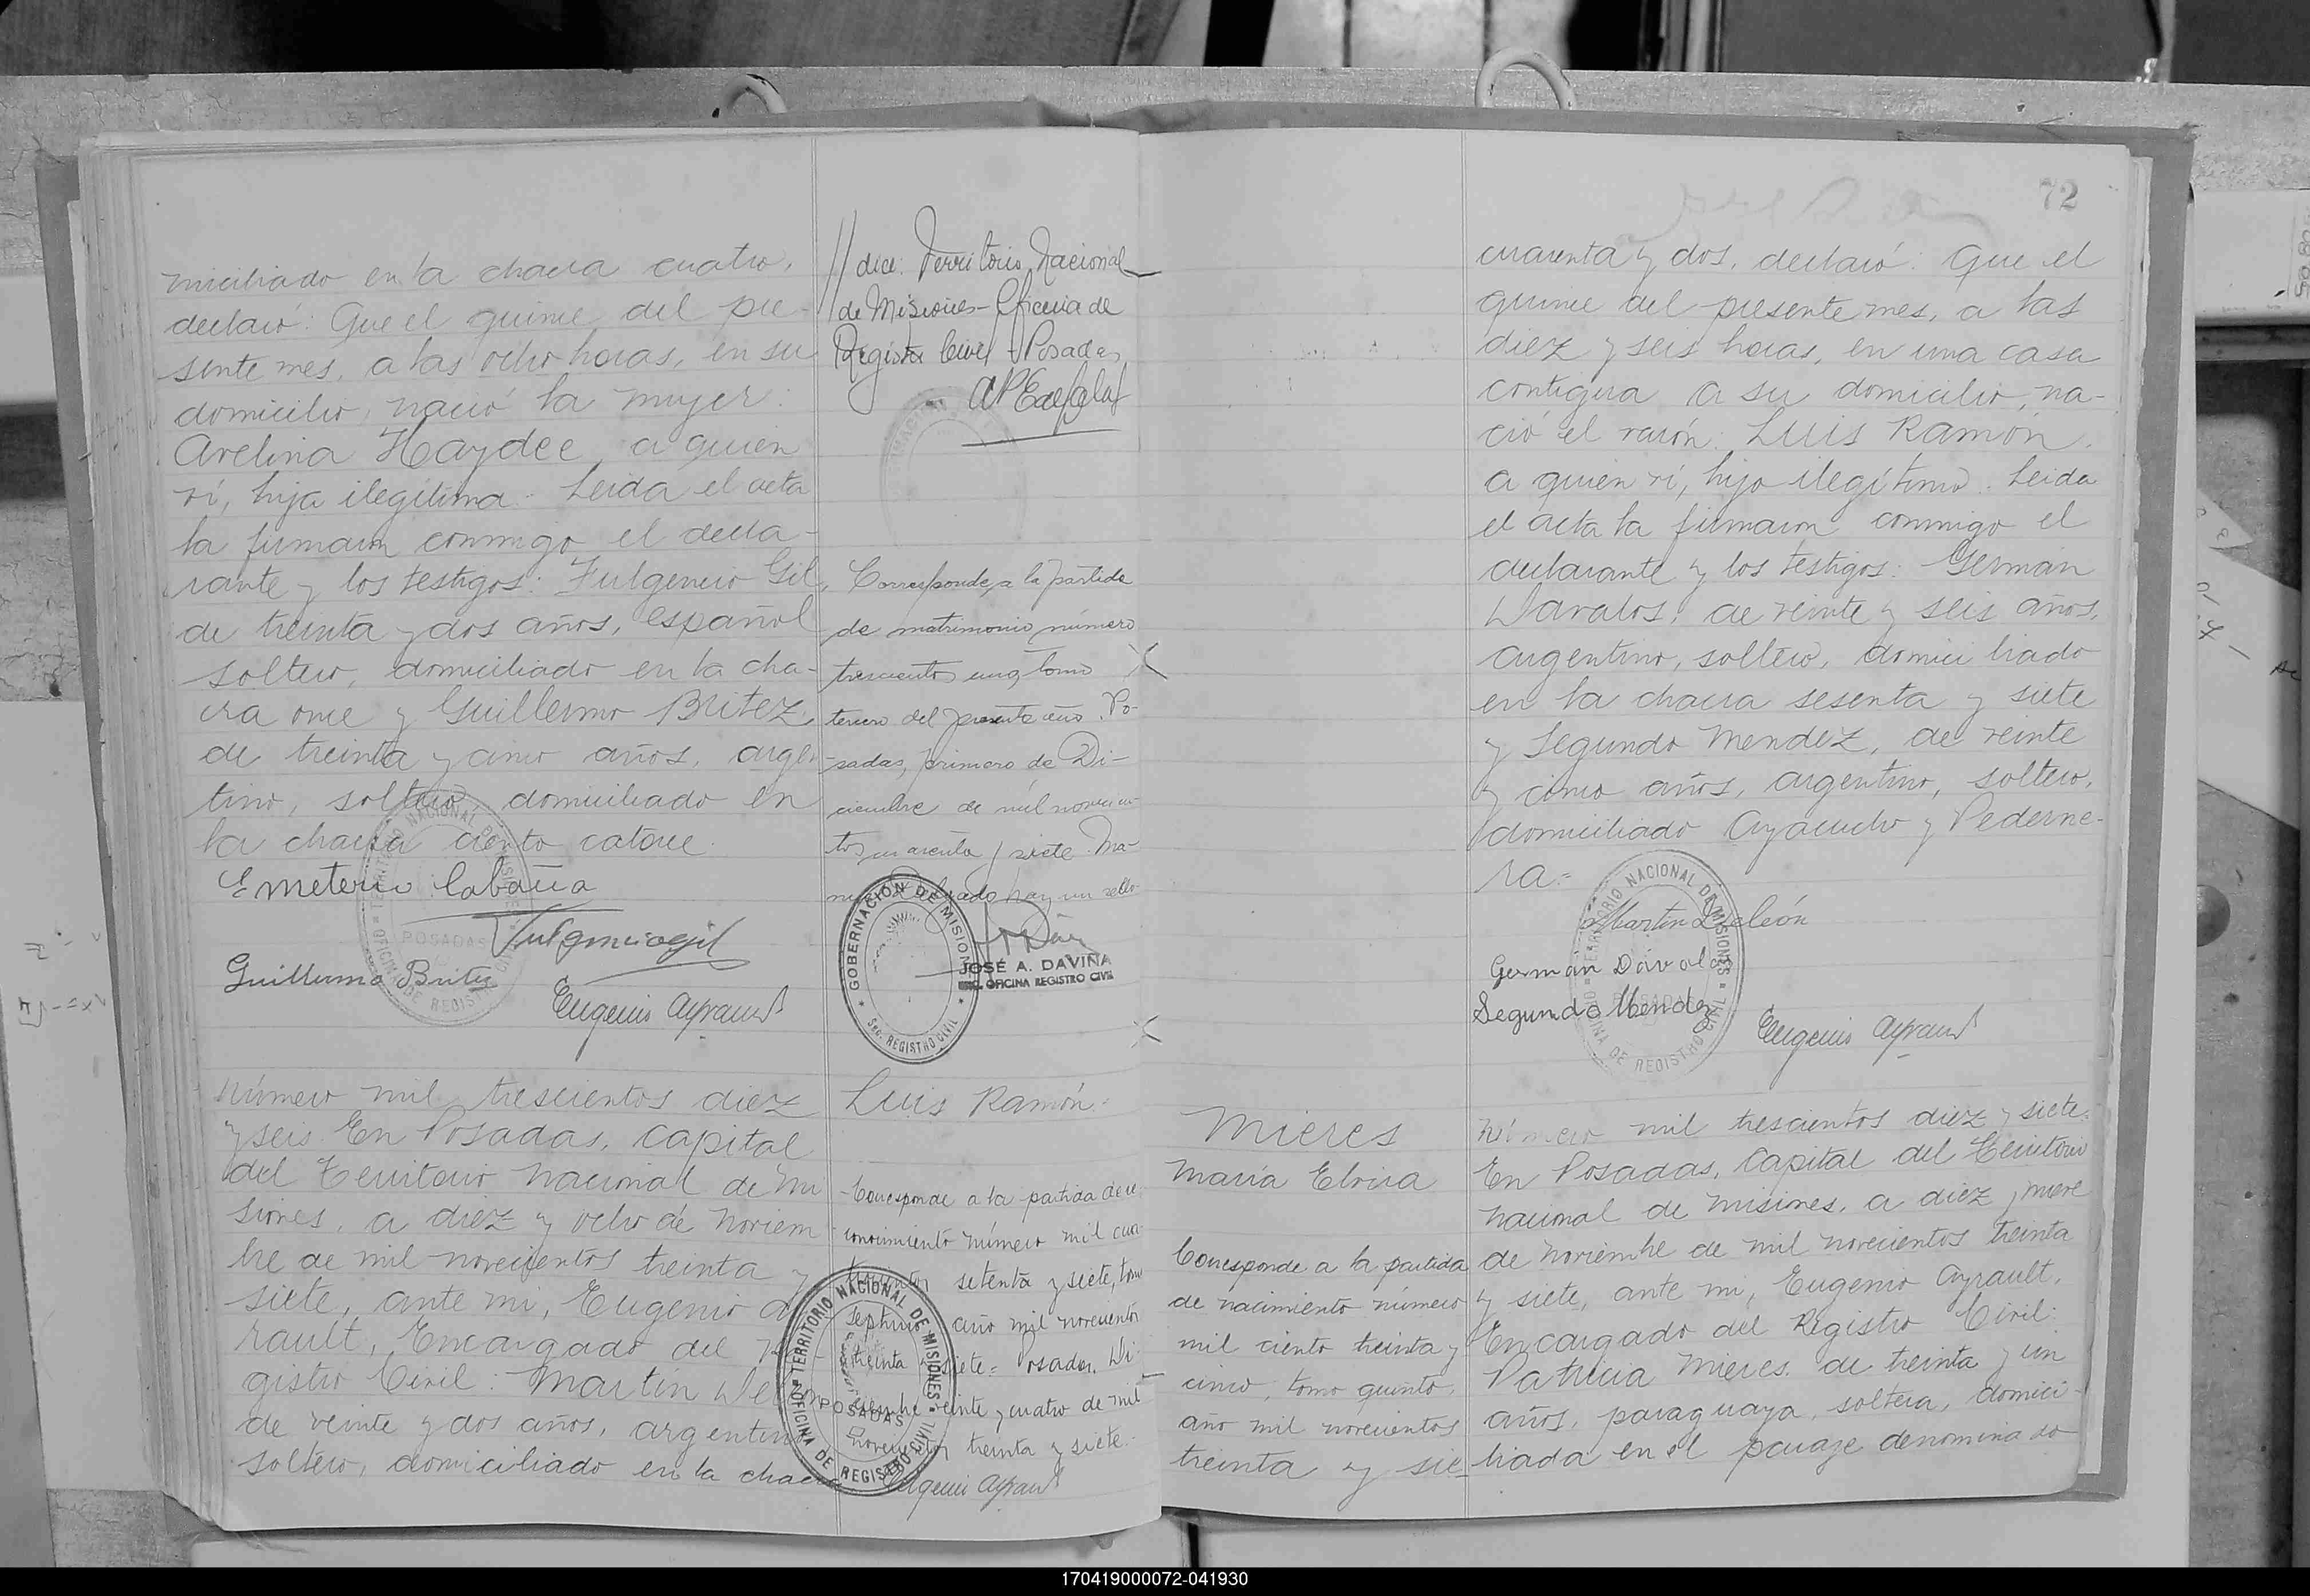 miciliado en la chacra cuatro,
declaró: Que el quince del pre-
sente mes, a las ocho horas, en su
domicilio, nació la mujer:
Avelina Haydee, a quien
vi, hija ilegítima. Leida el acta
la firmaron conmigo el decla-
rante y los testigos: Fulgencio Gil,
de treinta y dos años, español
soltero, domiciliado en la cha-
cra once y Guillermo Britez,
de treinta y cinco años, argen-
tino, soltero, domiciliado en
la chacra ciento catorce.
Emeterio Cabaña
Fulgencio gil
Guillermo Britez
Eugenio Ayrault
TERRITORIO NACIONAL DE MISIONES
POSADAS
OFICINA DE REGISTRO CIVIL
Número mil trescientos diez
y seis. En Posadas, Capital
del Territorio Nacional de Mi
siones, a diez y ocho de noviem
bre de mil novecientos treinta y
siete, ante mi, Eugenio Ay
rault, Encargado del Re-
gistro Civil: Martin De León
de veinte y dos años, argentino
soltero, domiciliado en la chacra
// dice: Territorio Nacional
de Misiones - Oficina de
Registro Civil - Posadas
Corresponde a la partida
de matrimonio número
trescientos uno, tomo
tercero del presente año. Po-
sadas, primero de Di-
ciembre de mil novecien
tos cuarenta y siete. Ma-
hay un sello
GOBERNACIÓN DE MISIONES
Sec. REGISTRO CIVIL
JOSÉ A. DAVIÑA
ENC. OFICINA REGISTRO CIVIL
Luis Ramón
Corresponde a la partida de re
conocimiento número mil cua
trocientos setenta y siete, tomo
septimo año mil novecientos
treinta y siete= Posadas, Di
ciembre veinte y cuatro de mil
novecientos treinta y siete.
Eugenio Ayrault
TERRITORIO NACIONAL DE MISIONES
POSADAS
OFICINA DE REGISTRO CIVIL
72
cuarenta y dos, declaró: Que el
quince del presente mes, a las
diez y seis horas, en una casa
contigua a su domicilio, na-
ció el varón: Luis Ramón,
a quien vi, hijo ilegítimo. Leida
el acta la firmaron conmigo el
declarante y los testigos: Germán
Davalos, de veinte y seis años,
argentino, soltero, domiciliado
en la chacra sesenta y siete
y Segundo Mendez, de veinte
y cinco años, argentino, soltero,
domiciliado Ayacucho y Pederne-
ra=
Martin De león
German Davalos
Segundo Mendez
Eugenio Ayrault
TERRITORIO NACIONAL DE MISIONES
POSADAS
OFICINA DE REGISTRO CIVIL
Mieres
María Elvira
Corresponde a la partida
de nacimiento número
mil ciento treinta y
cinco, tomo quinto,
año mil novecientos
treinta y sie_
Número mil trescientos diez y siete.
En Posadas, Capital del Territorio
Nacional de Misiones, a diez y nueve
de noviembre de mil novecientos treinta
y siete, ante mi, Eugenio Ayrault,
Encargado del Registro Civil:
Patricia Mieres, de treinta y un
años, paraguaya, soltera, domici-
liada en el paraje denominado
170419000072-041930